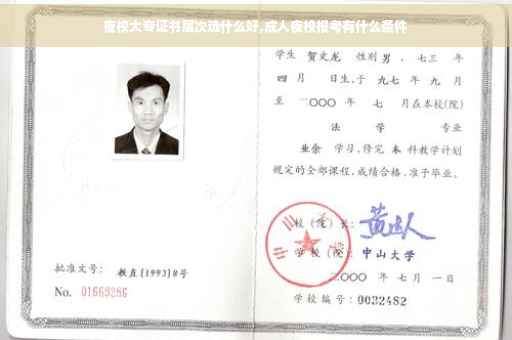 夜校大专证书层次选什么好,成人夜校报考有什么条件
学生 贺文龙 性别 男，七三 年
四 月 日生,于 九七 年 九 月
至 二〇〇〇 年 七 月在本校(院)
法 学 专业
业余 学习,修完 本 科教学计划
规定的全部课程,成绩合格,准予毕业。
校(院)长:
学 校(院): 中山大学
二〇〇〇 年 七 月 一 日
学校编号: 0032482
批准文号: 教直(1993)8号
No. 01669286